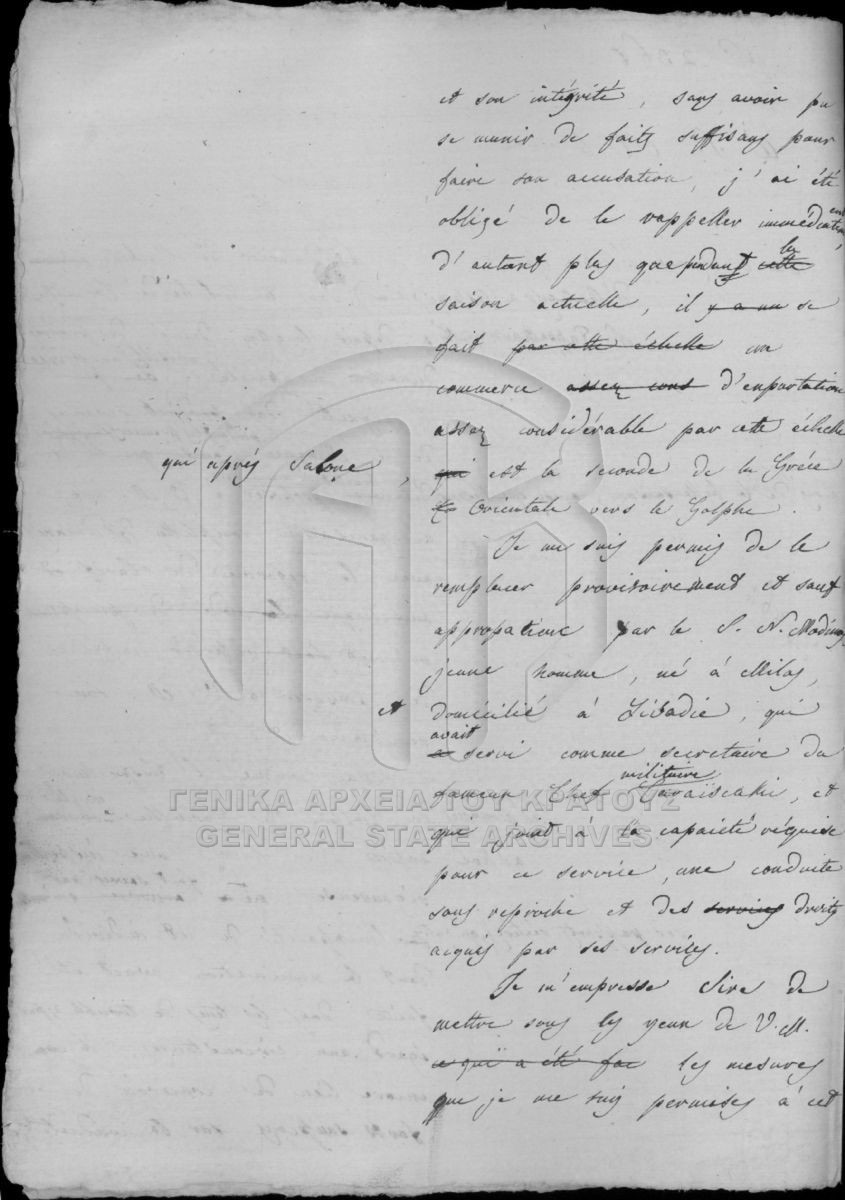 et son intégrité, sans avoir pu
se munir de faits suffisans pour
faire son accusation, j'ai été
obligé de le rappeller immédiatement,
d'autant plus que pendant cette la
saison actuelle, il y a un se
fait par cette échelle un
commerce assez cons d'exportation
assez considérable par cette échelle
qui après Salone, qui est la seconde de la Grèce
Orientale vers le Golphe.
Je me suis permis de le
remplacer provisoirement et sauf
appropation par le S. N.
jeune homme, né à Milos,
et domicilié à Livadie, qui
a avait servi comme secretaire du
fameux Chef militaire Caraïscaki, et
qui joint à la capacité réquise
pour ce service, une conduite
sans reproche et des services droits
acquis par ses services.
Je m'empresse Sire de
mettre sous les yeux de V. M.
ce qui a été fac les mesures
que je me suis permises à cet
ΓΕΝΙΚΑ ΑΡΧΕΙΑ ΤΟΥ ΚΡΑΤΟΥΣ
GENERAL STATE ARCHIVES